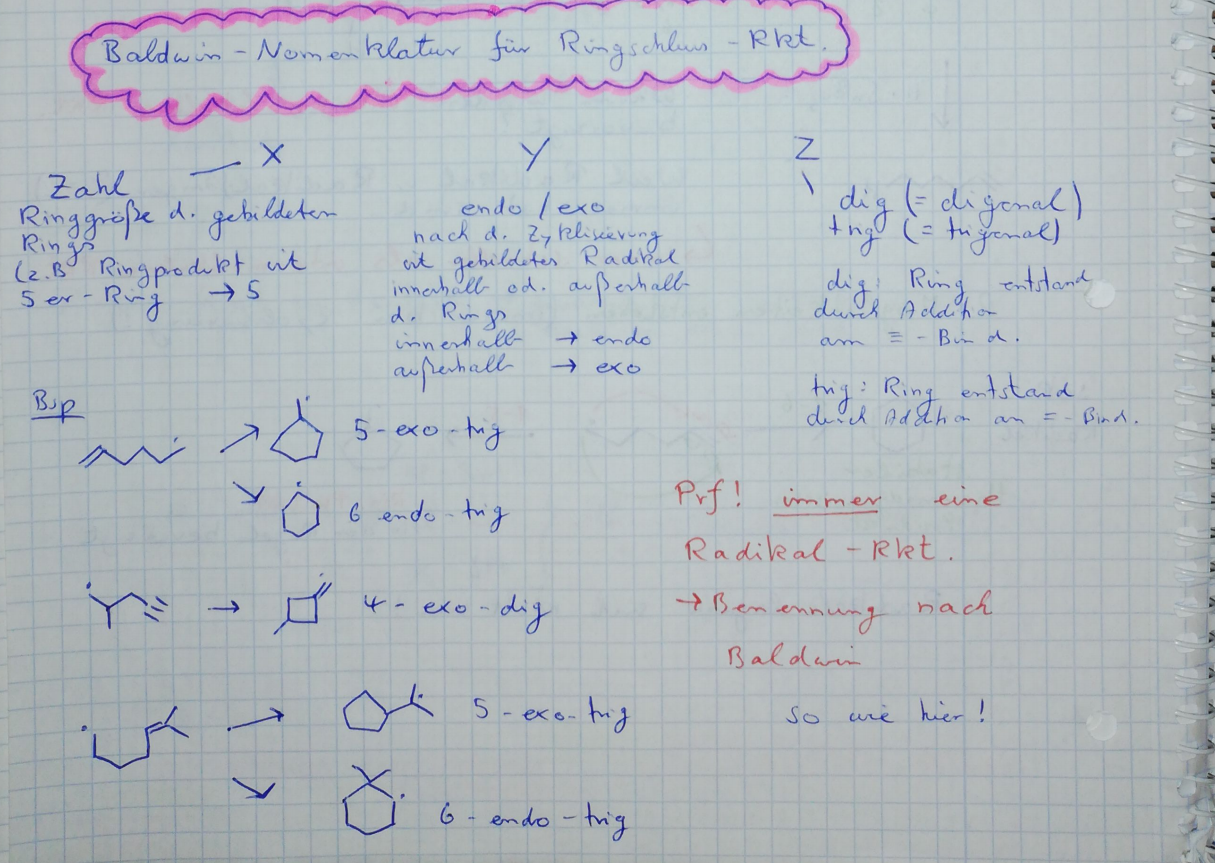 Baldwin-Nomenklatur für Ringschluss-Rkt.
X
Zahl
Ringgröße d. gebildeten
Rings
(z.B Ringprodukt ist
5er-Ring → 5
Y
endo / exo
nach d. Zyklisierung
ist gebildetes Radikal
innerhalb od. außerhalb
d. Rings
innerhalb → endo
außerhalb → exo
Z
dig (= digonal)
trig (= trigonal)
dig: Ring entstand
durch Addition
am ≡ - Bind.
trig: Ring entstand
durch Addition an = - Bind.
Bsp
5-exo-trig
6 endo-trig
4-exo-dig
5-exo-trig
6-endo-trig
Prf! immer eine
Radikal-Rkt.
→ Benennung nach
Baldwin
so wie hier!